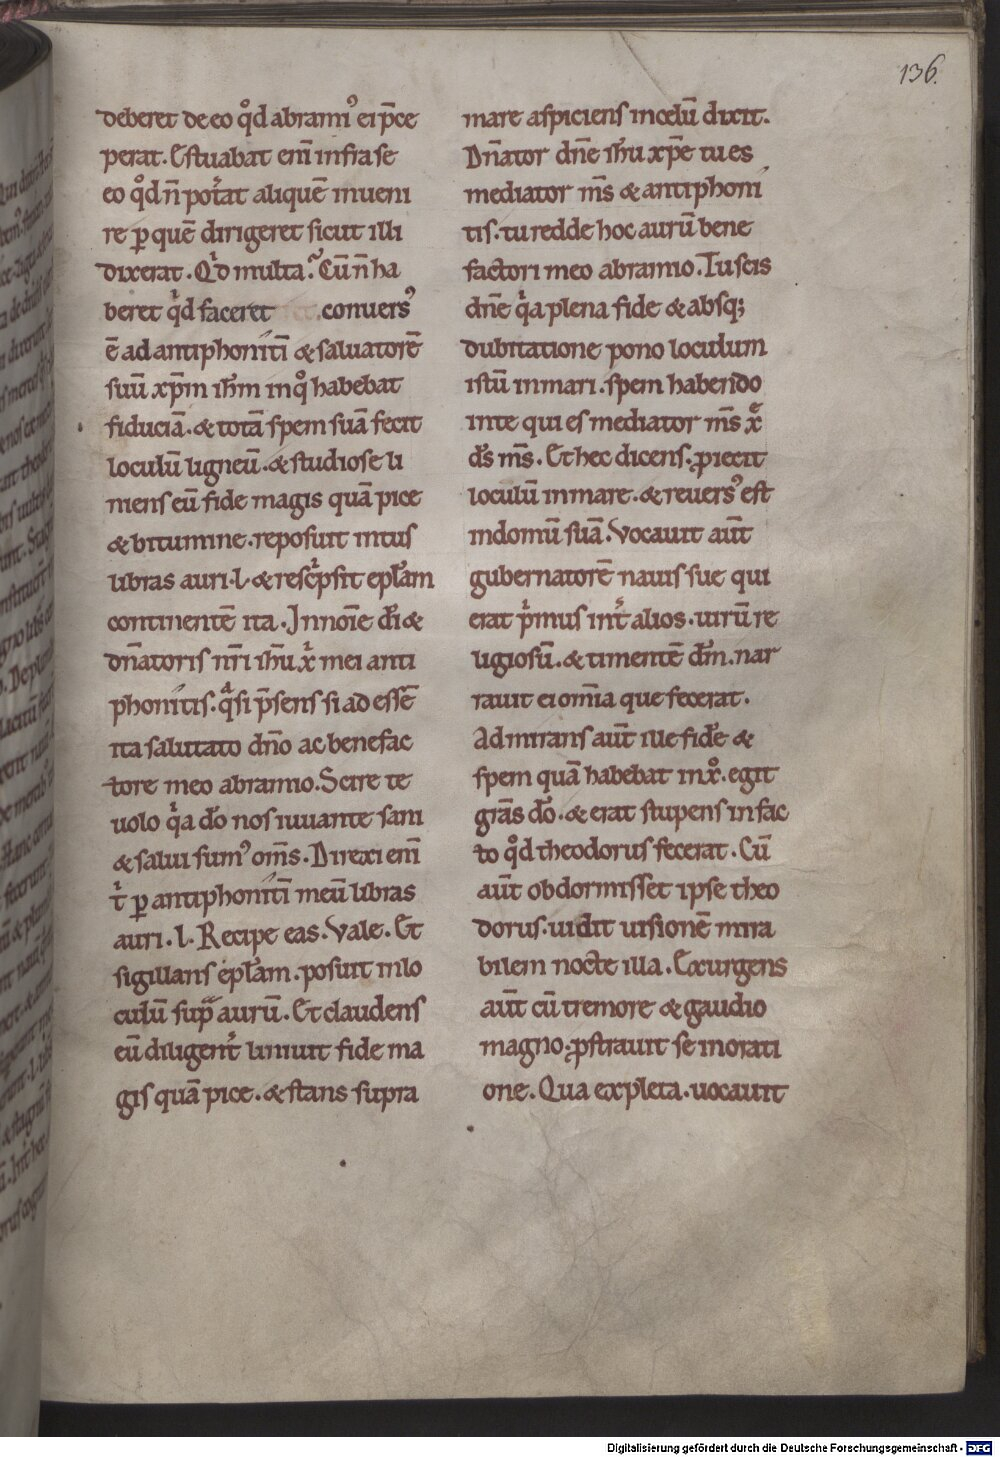 136.
deberet de eo qͦd abramiꝰ ei p̄ce
perat. Estuabat eni̅ infra se
eo qͦd n̄ pot̛at aliquē inueni
re ꝑ quē dirigeret sicut illi
dixerat. Qͥd multa? Cū n̄ ha
beret qͥd faceret conuersꝰ
ē ad antiphonití̅ & saluatorē
suū xp̄m ih̄m in qͦ habebat
fiduciā. & totā spem suā fecit
loculū ligneū. & studiose li
niens eū fide magis quā pice
& bitumine. reposuit intus
libras auri. l. & resc̛psit epl̄am
continentē ita. In noīe d̄i &
dn̄atoris nr̄i ih̄u xͥ mei anti
phonítis. qͣsi p̄sens si adessē
ita salutato dn̄o ac benefac
tore meo abramio. Scire te
uolo qͥa d̄o nos iuuante sani
& salui sumꝰ om̄s. Direxi eni̅
tͥ ꝑ antiphoníti̅ meū libras
auri. l. Recipe eas. Vale. Et
sigillans epl̄am. posuit in lo
culū supͣ aurū. Et claudens
eū diligent̛ liniuit fide ma
gis quā pice. & stans supra
mare aspiciens in celū dixit.
Dn̄ator dn̄e ih̄u xp̄e tu es
mediator m̄s & antiphoni
tis. tu redde hoc aurū bene
factori meo abramio. Tu scis
dn̄e qͥa plena fide & absqꝫ
dubitatione pono loculum
istū in mari. spem habendo
in te qui es mediator m̄s xͤ
d̄s m̄s. Et hec dicens. ꝓiecit
loculū in mare. & reuersꝰ est
in domū suā. Vocauit aūt
gubernatorē nauis sue qui
erat pͥmus int̛ alios. uirū re
ligiosū. & timentē d̄m. nar
rauit ei om̄ia que fecerat.
Admirans aūt ille fidē &
spem quā habebat in xͦ. egit
grās d̄o. & erat stupens in fac
to qͦd theodorus fecerat. Cū
aūt obdormisset ipse theo
dorus. uidit uisionē mira
bilem nocte illa. Exurgens
aūt cū tremore & gaudio
magno. ꝓstrauit se in orati
one. Qua expleta. uocauit
Digitalisierung gefördert durch die Deutsche Forschungsgemeinschaft - DFG